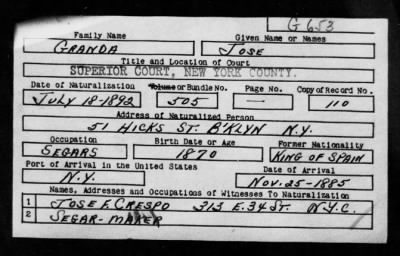 G 653
Family Name Given Name or Names
GRANDA JOSE
Title and Location of Court
SUPERIOR COURT, NEW YORK COUNTY.
Date of Naturalization Volume or Bundle No. Page No. Copy of Record No.
JULY 18-1892 505 — 110
Address of Naturalized Person
51 HICKS ST. B'KLYN N.Y.
Occupation Birth Date or Age Former Nationality
SEGARS 1870 KING OF SPAIN
Port of Arrival in the United States Date of Arrival
N.Y. NOV. 25-1885
Names, Addresses and Occupations of Witnesses To Naturalization
1 JOSE F. CRESPO 313 E. 34 ST. N.Y.C.
2 SEGAR-MAKER